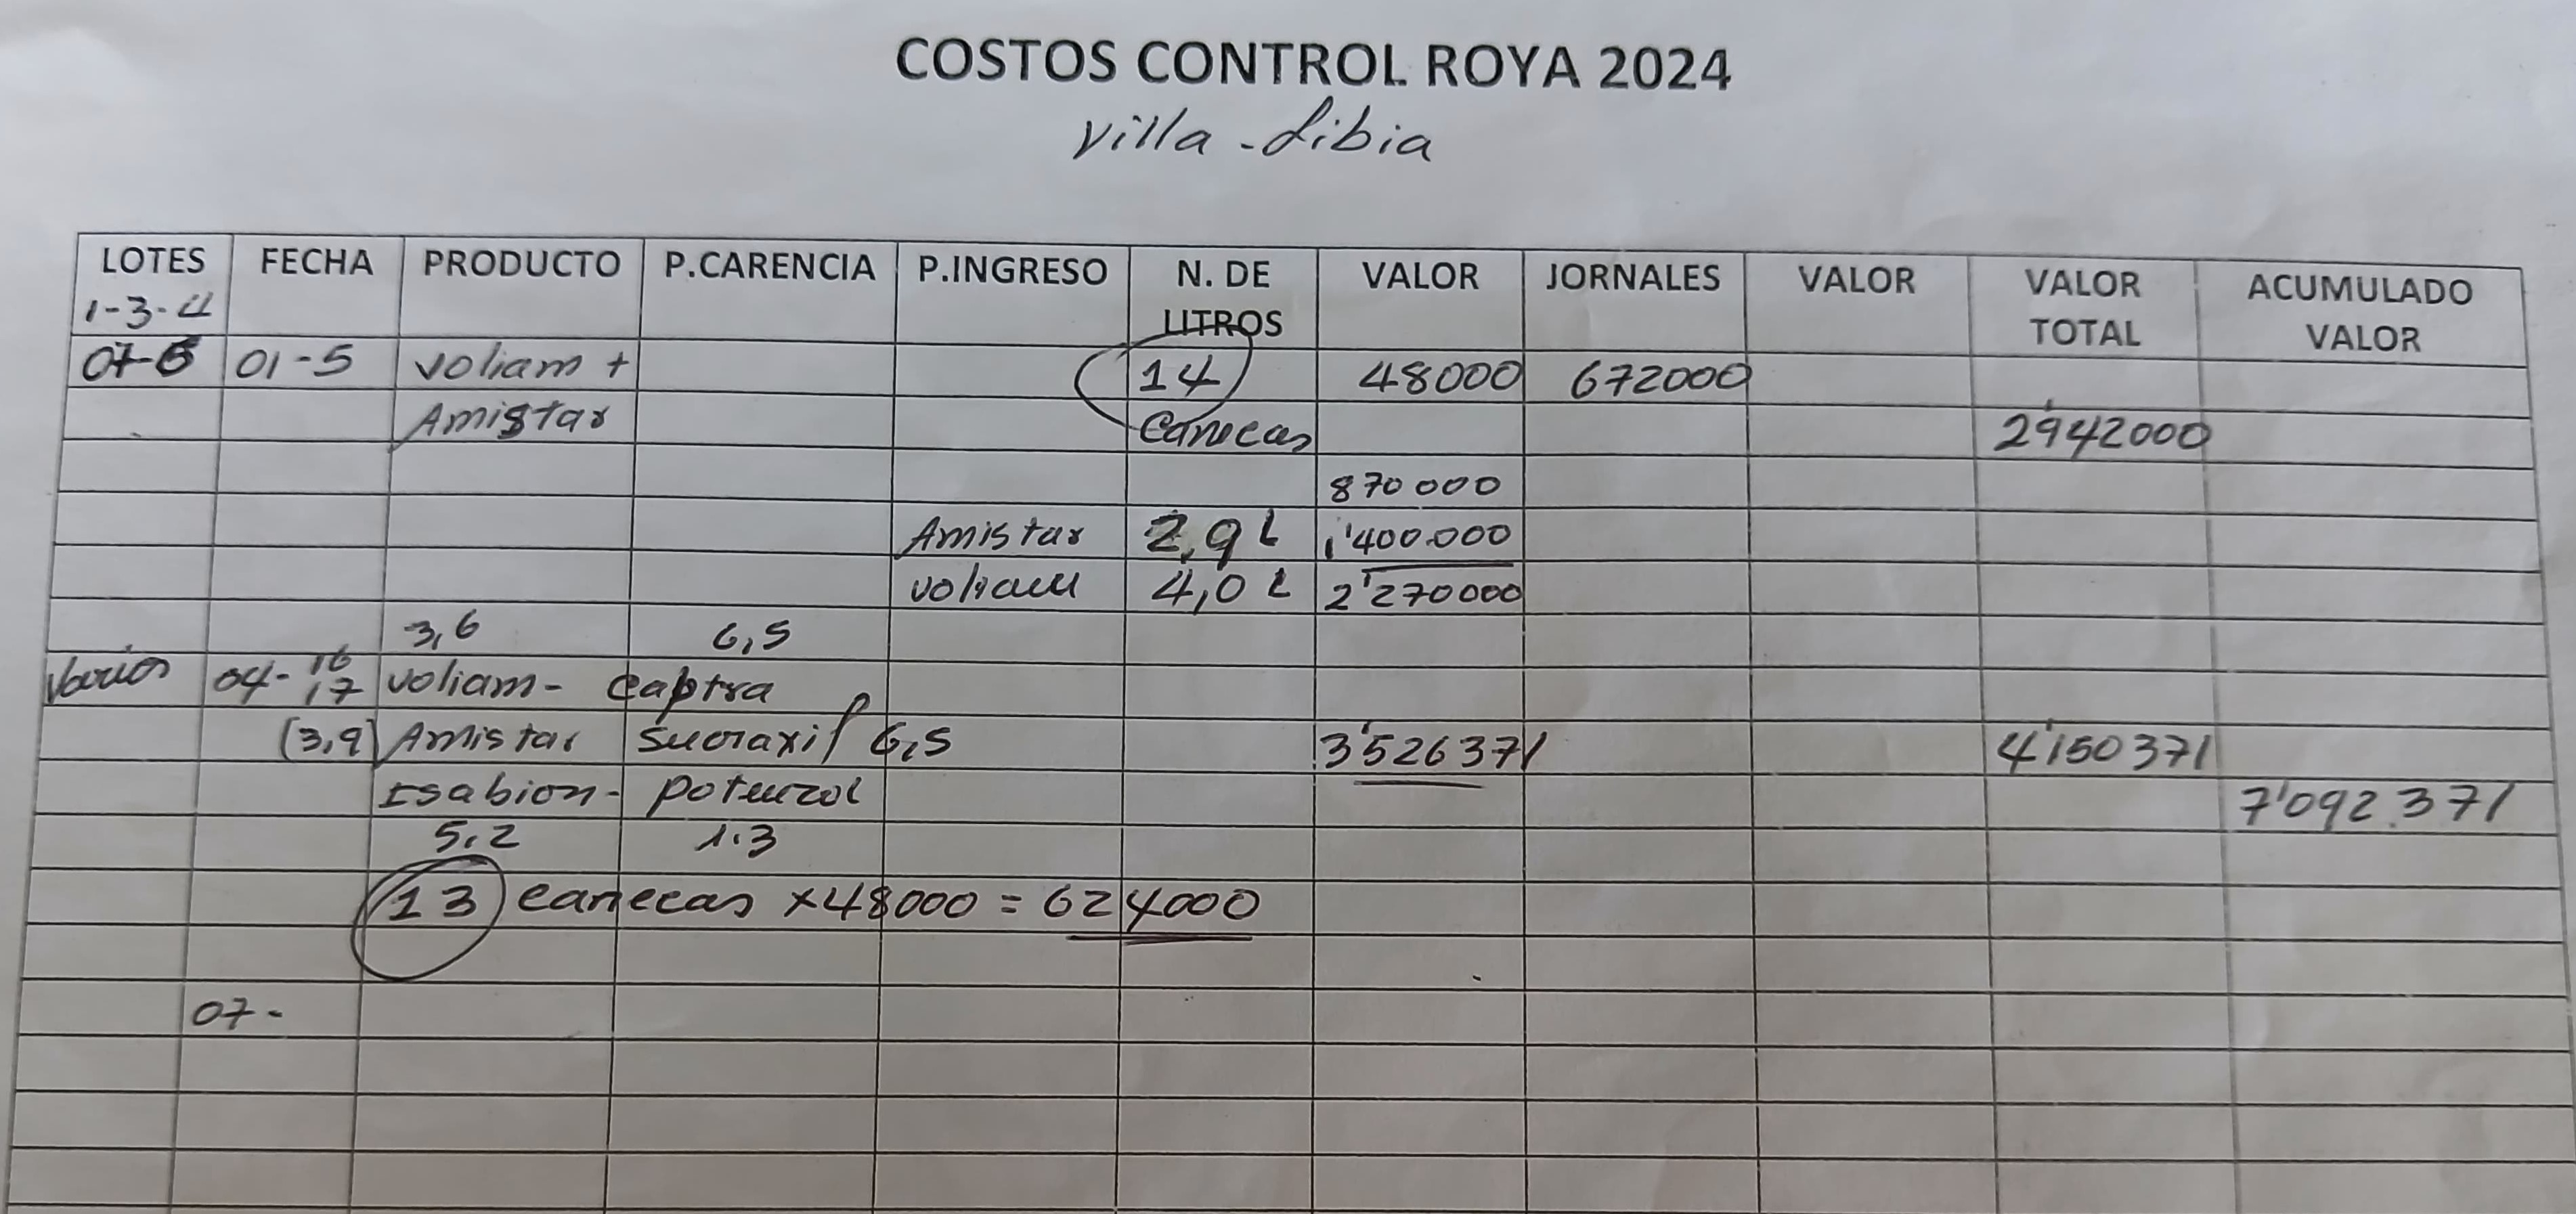 COSTOS CONTROL ROYA 2024
Villa - Libia
LOTES FECHA PRODUCTO P.CARENCIA P.INGRESO N. DE LITROS VALOR JORNALES VALOR VALOR TOTAL ACUMULADO VALOR
1-3-4
01-5 voliam + 14 48000 672000
Amistar Canecas 2'942000
870000
Amistar 2,9 L 1'400.000
voliam 4,0 L 2'270000
3,6 6,5
Varios 04-16 17 voliam - captra
(3,9) Amistar 6,5 3'526371 4'150371
Isabion - potenzol 7'092.371
5,2 1.3
13 canecas x48000 = 624000
07-